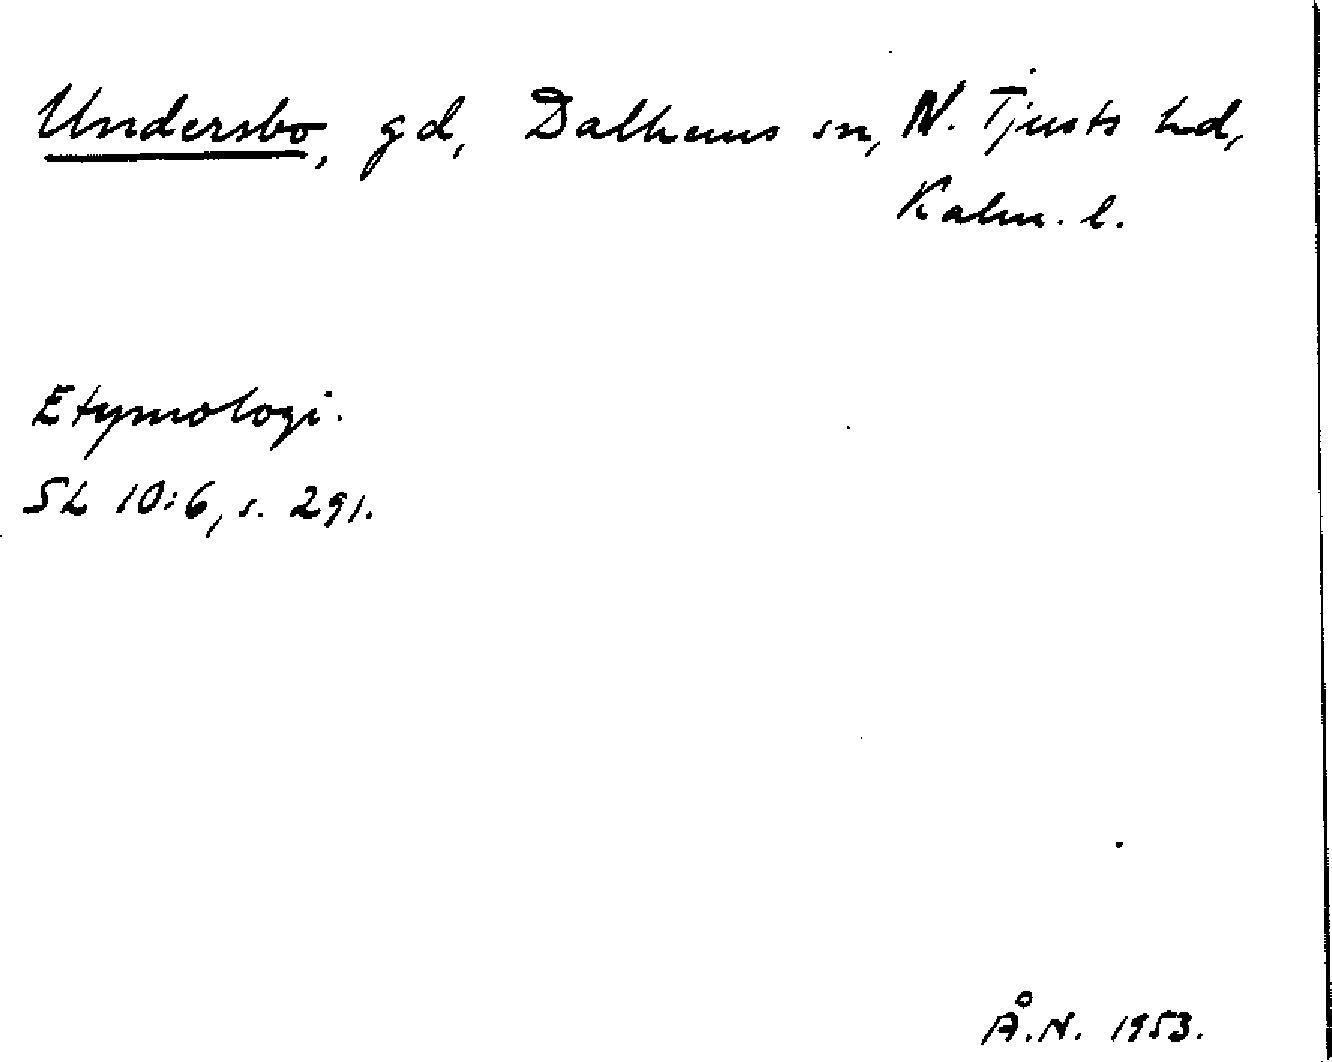 Undersbo, gd, Dalhems sn, N. Tjusts hd,
Kalm. l.
Etymologi.
SL 10:6, s. 291.
Å.N. 1953.